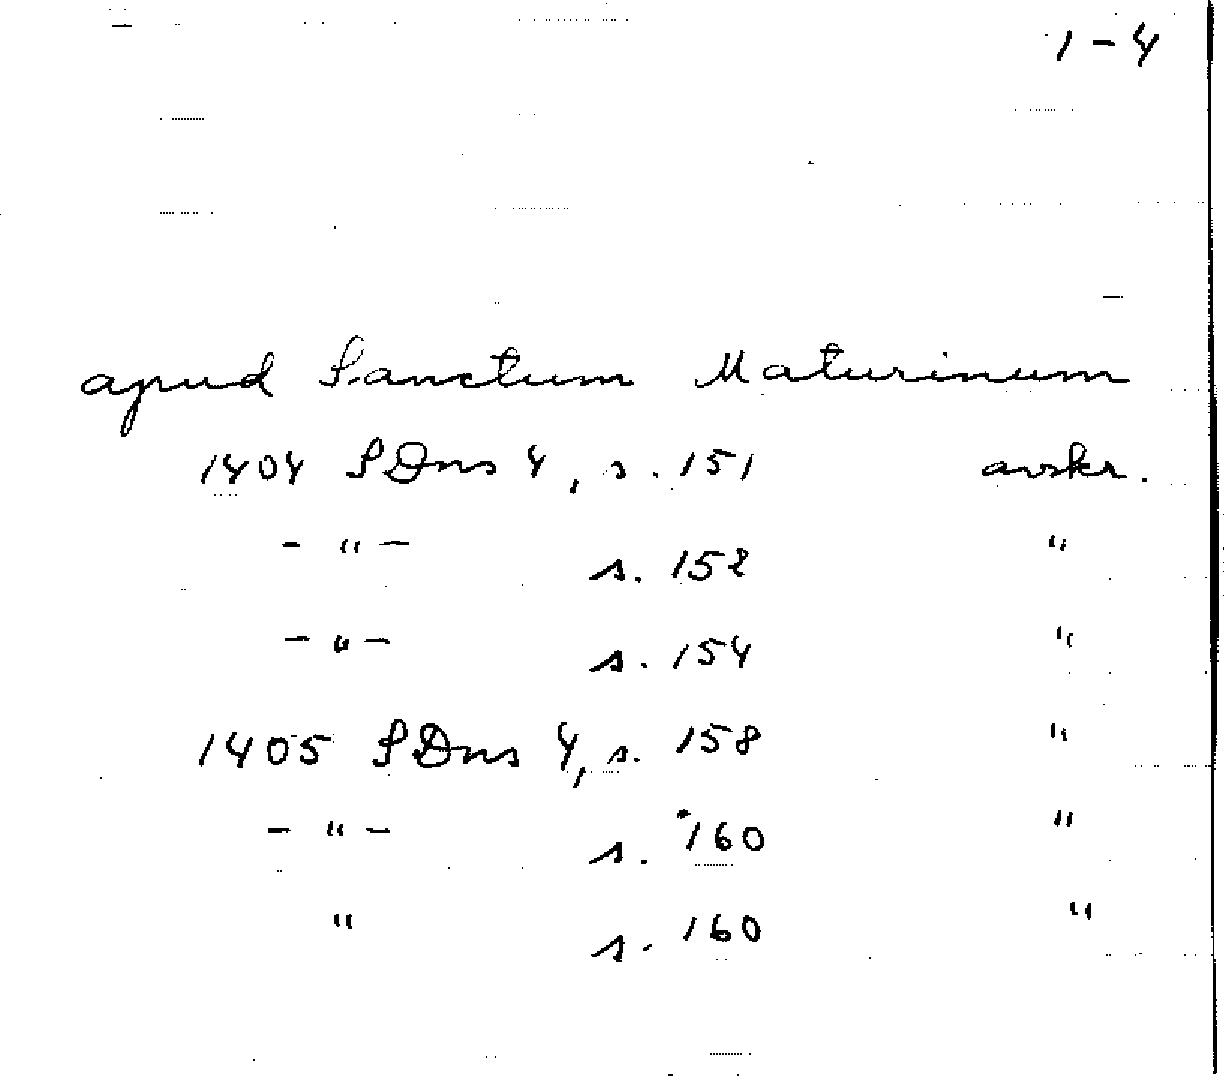 1-4
apud Sanctum Maturinum
1404 SDns 4, s. 151 avskr.
- " - s. 152 "
- " - s. 154 "
1405 SDns 4, s. 158 "
- " - s. 160 "
" s. 160 "